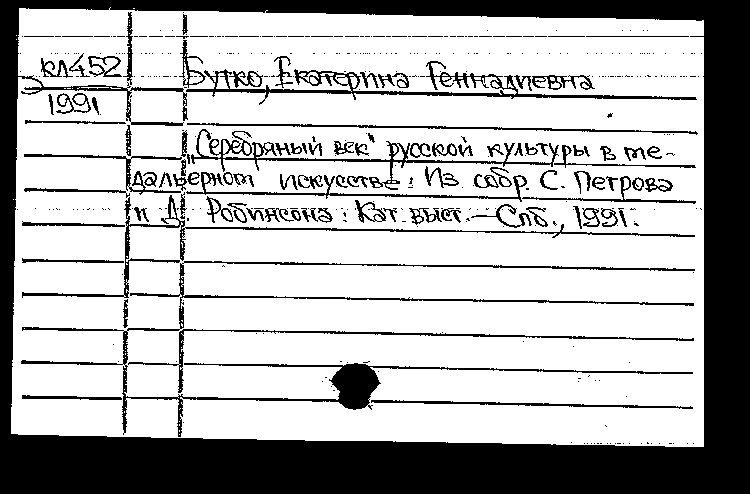 кл452
1991
Бутко, Екатерина Геннадиевна
"Серебряный век" русской культуры в ме-
дальерном искусстве: Из собр. С. Петрова
и Д. Робинсона: Кат. выст. — Спб., 1991.